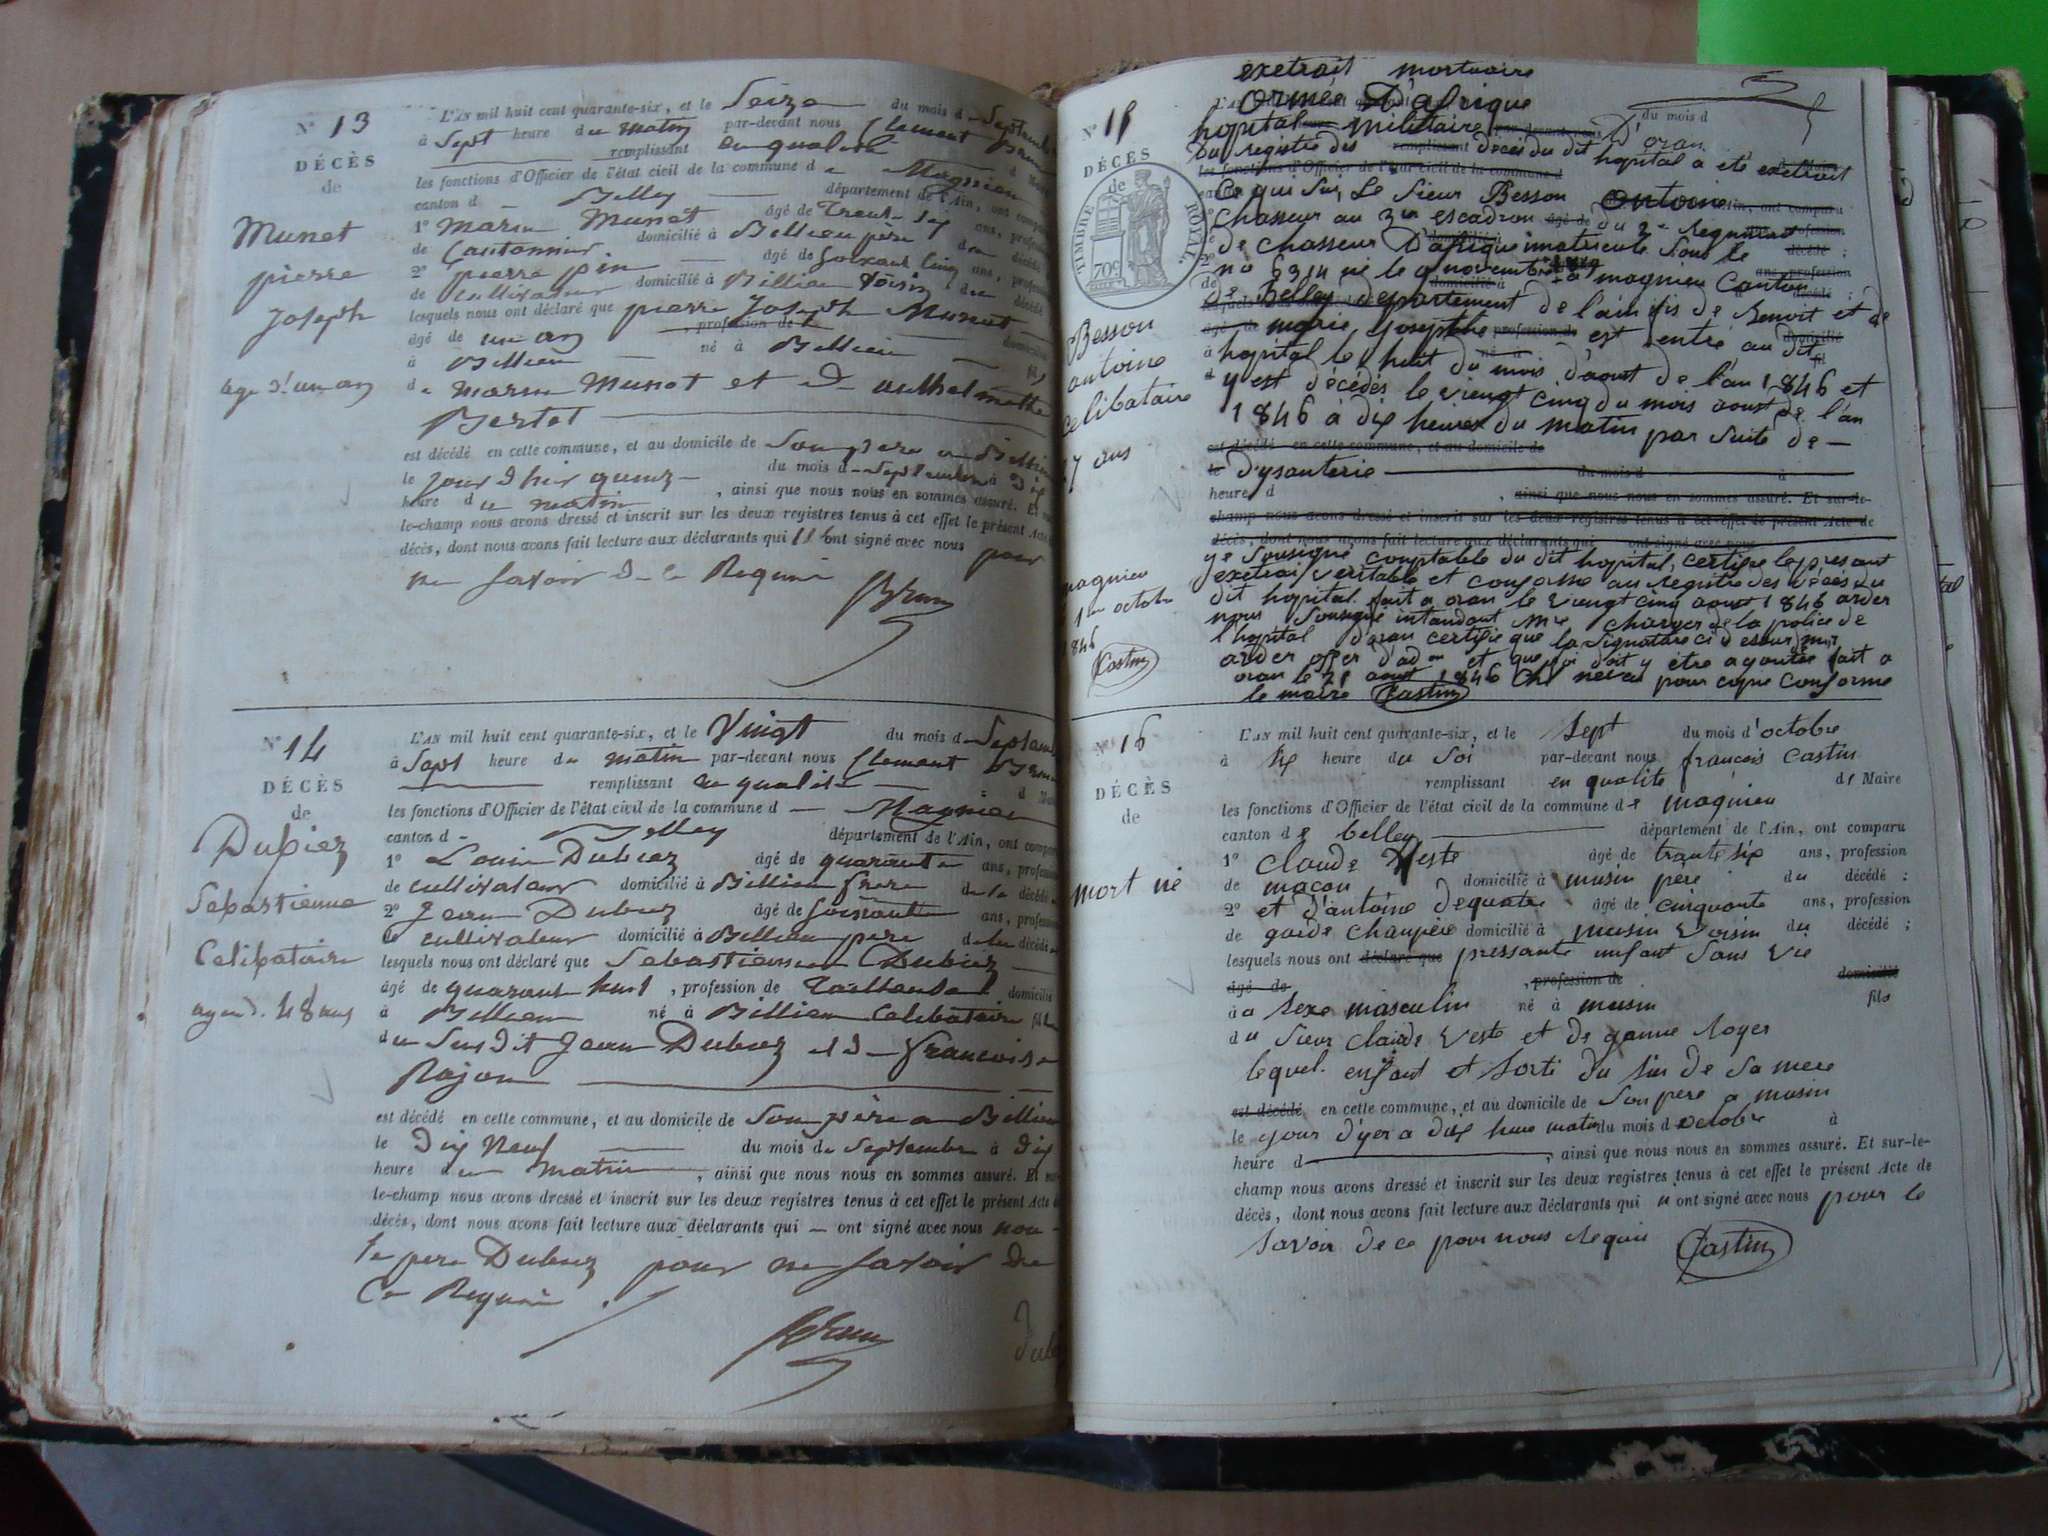 N° 13
DÉCÈS
de
Munet
pierre
Joseph
age d'un an
L'AN mil huit cent quarante-six, et le Seize du mois d Septembre
à Sept heure du matin par-devant nous Clement Brun
remplissant en qualité d Maire
les fonctions d'Officier de l'état civil de la commune de Magnieu
canton d Belley département de l'Ain, ont comparu
1° Marin Munet âgé de Trente six ans, profession
de Cantonnier domicilié à Billieu père du décédé
2° pierre pin âgé de Soixante Cinq ans, profession
de cultivateur domicilié à Billieu Voisin du décédé
lesquels nous ont déclaré que pierre Joseph Munet
âgé de un an, profession de domicilié
à Billieu né à Billieu fils
de marin Munet et de anthelmette
Bertet
est décédé en cette commune, et au domicile de Son pere a Billieu
le jour d'hier quinze du mois de Septembre à dix
heure du matin, ainsi que nous nous en sommes assuré. Et sur-
le-champ nous avons dressé et inscrit sur les deux registres tenus à cet effet le présent Acte de
décès, dont nous avons fait lecture aux déclarants qui ont signé avec nous pour
ne Savoir de ce Requis
Brun
N° 14
DÉCÈS
de
Dubiez
Sebastienne
Celibataire
agee d. 48 ans
L'AN mil huit cent quarante-six, et le Vingt du mois de Septembre
à Sept heure du matin par-devant nous Clement Brun
remplissant en qualité d Maire
les fonctions d'Officier de l'état civil de la commune d Magnieu
canton de Belley département de l'Ain, ont comparu
1° Louis Dubiez âgé de quarante ans, profession
de cultivateur domicilié à Billieu frere de la décédée
2° Jean Dubiez âgé de Soixante ans, profession
de cultivateur domicilié à Billieu père de la décédée
lesquels nous ont déclaré que Sebastienne Dubiez
âgé de quarante huit, profession de domicilié
à Billieu né à Billieu Celibataire fille
du Susdit Jean Dubiez et de francoise
Rojon
est décédé en cette commune, et au domicile de Son père a Billieu
le Dix Neuf du mois de Septembre à Dix
heure du matin, ainsi que nous nous en sommes assuré. Et sur-
le-champ nous avons dressé et inscrit sur les deux registres tenus à cet effet le présent Acte de
décès, dont nous avons fait lecture aux déclarants qui — ont signé avec nous non
le pere Dubiez pour ne Savoir de
Ce Requis
Brun
N° 15
DÉCÈS
de
TIMBRE ROYAL
70c
Besson
antoine
celibataire
27 ans
magnieu
1er octobre
1846
Castin
exetrait mortuaire
Armée D'afrique
hopital militaire D'oran
du registre des deces du dit hopital a ete exetrait
Ce qui Suit, Le Sieur Besson Antoine
Chasseur au 3me escadron du 2e Regiment
de chasseur D'afrique imatricule Sous le
no 6314 né le 9 novembre a magnieu Canton
de Belley departement de l'ain fils de Benoit et de
marie Josephte est entré au dit
hopital le huit du mois d'aout de l'an 1846 et
y est décédés le vieugt cinq du mois aoust de l'an
1846 à dix heures du matin par suite de —
dysanterie
est décédé en cette commune, et au domicile de
du mois d à
heure d, ainsi que nous nous en sommes assuré. Et sur-le-
champ nous avons dressé et inscrit sur les deux registres tenus à cet effet le présent Acte de
décès, dont nous avons fait lecture aux déclarants qui ont signé avec nous
ye Sousigné comptable du dit hopital, certifie le presant
exetrai veritable et conforme au registre des déces du
dit hopital fait a oran le vieugt cinq aoust 1846 arder
nous Sousigné intandant mre charger de la police de
l'hopital d'oran certifie que la Signature ci dessus
arder offer d'adon et que foi doit y etre ajoutée fait a
oran le 21 aout 1846 pour copie conforme
le maire Castin
N° 16
DÉCÈS
de
mort né
L'AN mil huit cent quarante-six, et le Sept du mois d'octobre
à six heure du Soi par-devant nous françois Castin
remplissant en qualite de Maire
les fonctions d'Officier de l'état civil de la commune de magnieu
canton de belley département de l'Ain, ont comparu
1° claude Veste âgé de trante six ans, profession
de macon domicilié à musin pere du décédé ;
2° et d'antoine dequatre âgé de cinquante ans, profession
de garde champére domicilié à musin Voisin du décédé ;
lesquels nous ont déclaré que pressante unfant Sans Vie
âgé de, profession de domicilié
à a Sexe masculin né à musin fils
du Sieur claude Veste et de ganne Royer
lequel enfant et Sorti du Sin de Sa mere
est décédé en cette commune, et au domicile de Son pere a musin
le jour d'yer a dix heure matin du mois d octobre à
heure d, ainsi que nous nous en sommes assuré. Et sur-le-
champ nous avons dressé et inscrit sur les deux registres tenus à cet effet le présent Acte de
décès, dont nous avons fait lecture aux déclarants qui n ont signé avec nous pour le
Savoir de ce pour nous Requis Castin